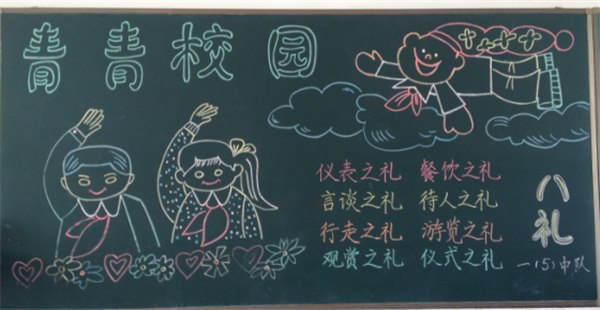 青青校园
仪表之礼 餐饮之礼
言谈之礼 待人之礼
行走之礼 游览之礼
观赏之礼 仪式之礼
八礼
一(5)中队